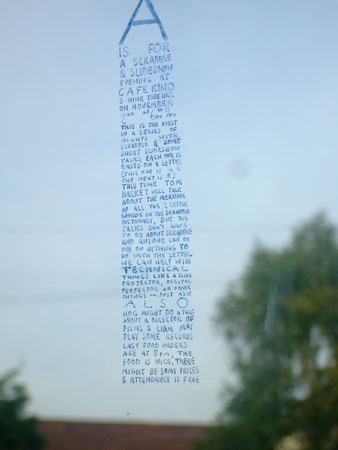 A
IS FOR
A SCRABBLE
& SLIDESHOW
EVENING AT
CAFE KINO
3 NINE TREE HILL
ON NOVEMBER
2ND AT
THIS IS THE FIRST
IN A SERIES OF
NIGHTS WITH
SCRABBLE & SOME
SHORT SLIDESHOW
TALKS. EACH ONE IS
BASED ON A LETTER
(THIS ONE IS A &
THE NEXT IS B)
THIS TIME TOM
HACKET WILL TALK
ABOUT THE MEANING
OF ALL THE 2 LETTER
WORDS IN THE SCRABBLE
DICTIONARY, BUT THE
TALKS DON'T HAVE
TO BE ABOUT SCRABBLE
AND ANYONE CAN DO
ONE ON ANYTHING TO
DO WITH THE LETTER.
WE CAN HELP WITH
TECHNICAL
THINGS LIKE A SLIDE
PROJECTOR, DIGITAL
PROJECTOR OR OTHER
THINGS - JUST ASK
ALSO
HOG MIGHT DO A TALK
ABOUT A DIRECTOR OF
FILMS & LIAM MAY
PLAY SOME RECORDS
LAST FOOD ORDERS
ARE AT 8PM, THE
FOOD IS NICE, THERE
MIGHT BE SOME PRIZES
& ATTENDANCE IS FREE